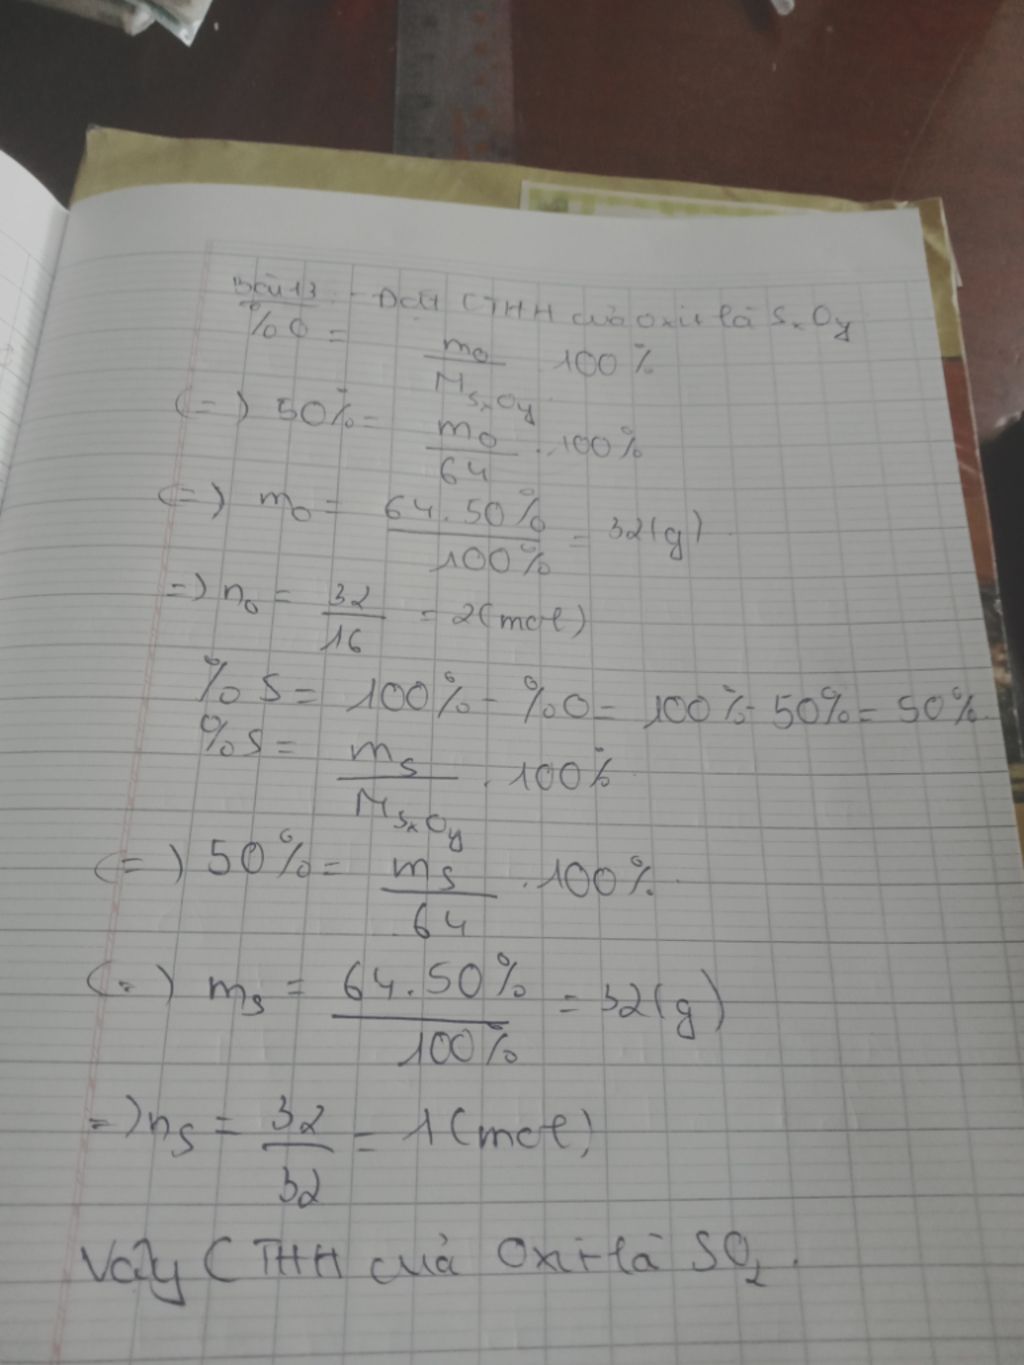 Bài 13: - Đặt CTHH của oxit là SxOy
%O = mO / MSxOy . 100%
(=) 50% = mO / 64 . 100%
(=) mO = 64.50% / 100% = 32(g)
=) nO = 32 / 16 = 2(mol)
%S = 100% - %O = 100% - 50% = 50%
%S = mS / MSxOy . 100%
(=) 50% = mS / 64 . 100%
(=) mS = 64.50% / 100% = 32(g)
=) nS = 32 / 32 = 1(mol)
Vậy CTHH của Oxit là SO2.